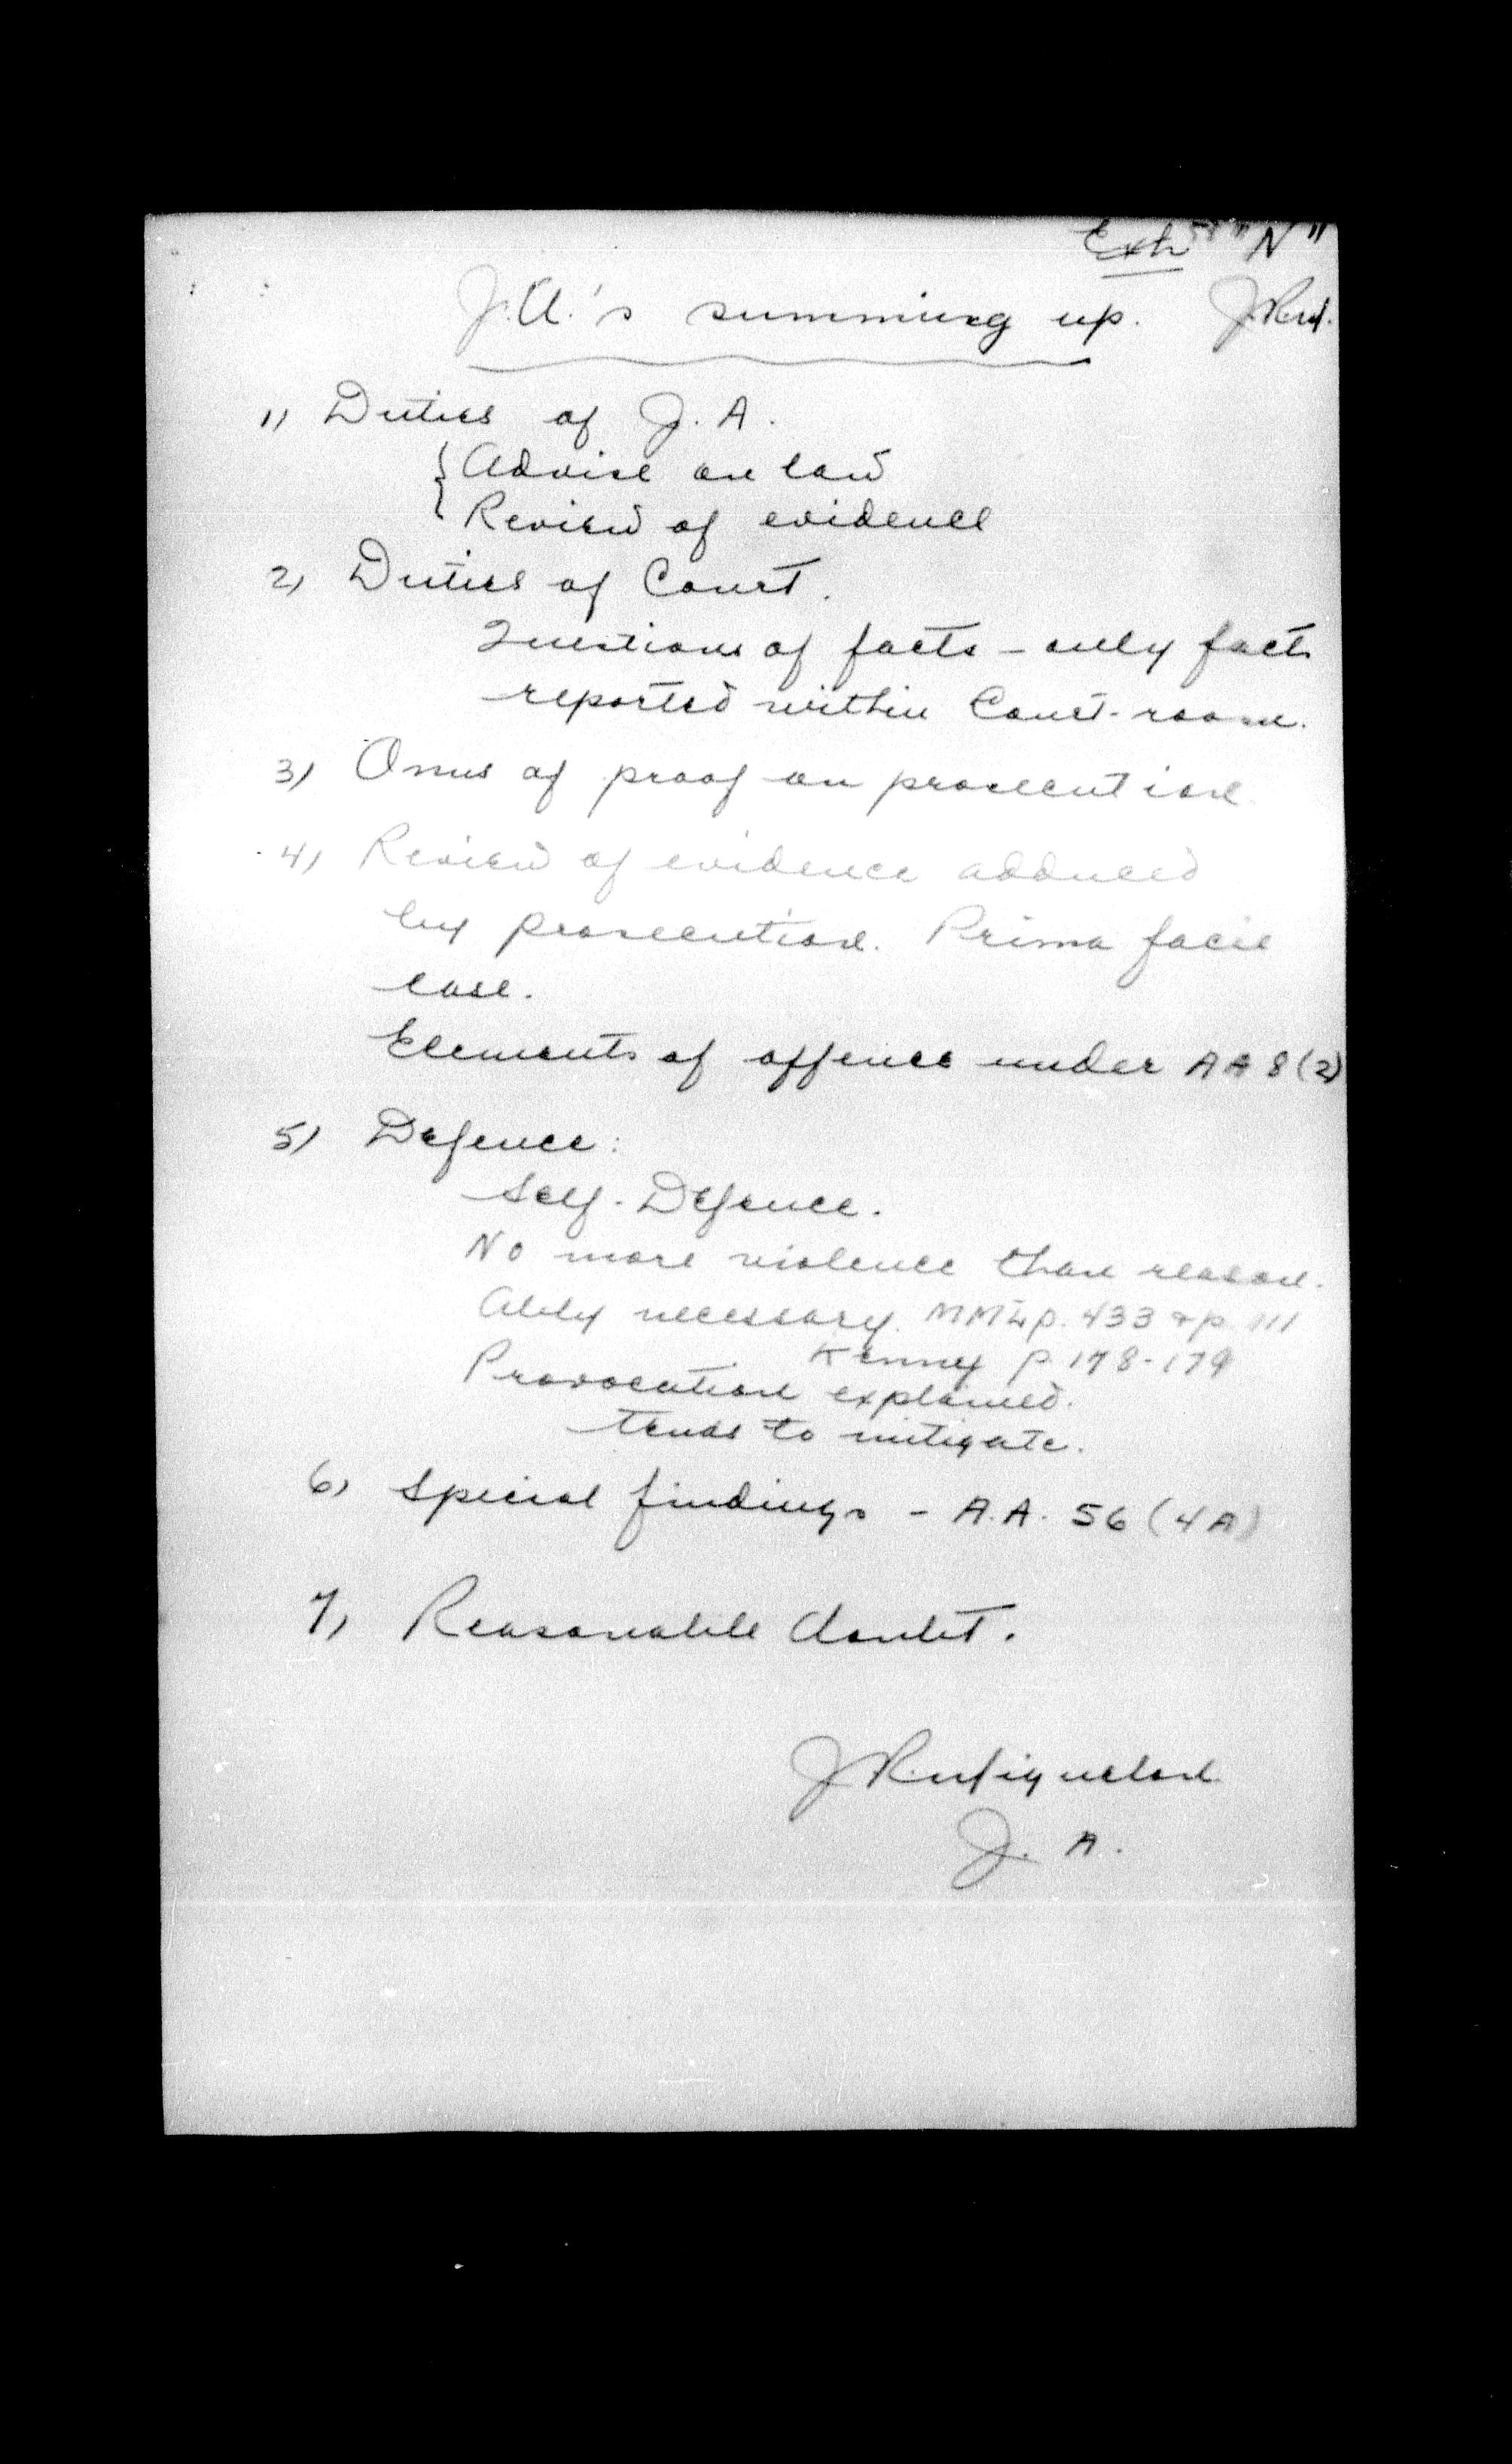 Exh "N"
J.A.'s summing up.
1) Duties of J. A.
{ Advise on law
Review of evidence
2) Duties of Court.
Questions of facts - only facts
reported within Court-room.
3) Onus of proof on prosecution.
4) Review of evidence adduced
by prosecution. Prima facie
case.
Elements of offence under AA 8(2)
5) Defence:
Self-Defence.
No more violence than reason-
ably necessary. MML p. 433 & p. 111
Kenny p. 178-179
Provocation explained.
tends to mitigate.
6) Special findings - A.A. 56 (4A)
7) Reasonable doubt.
J. A.